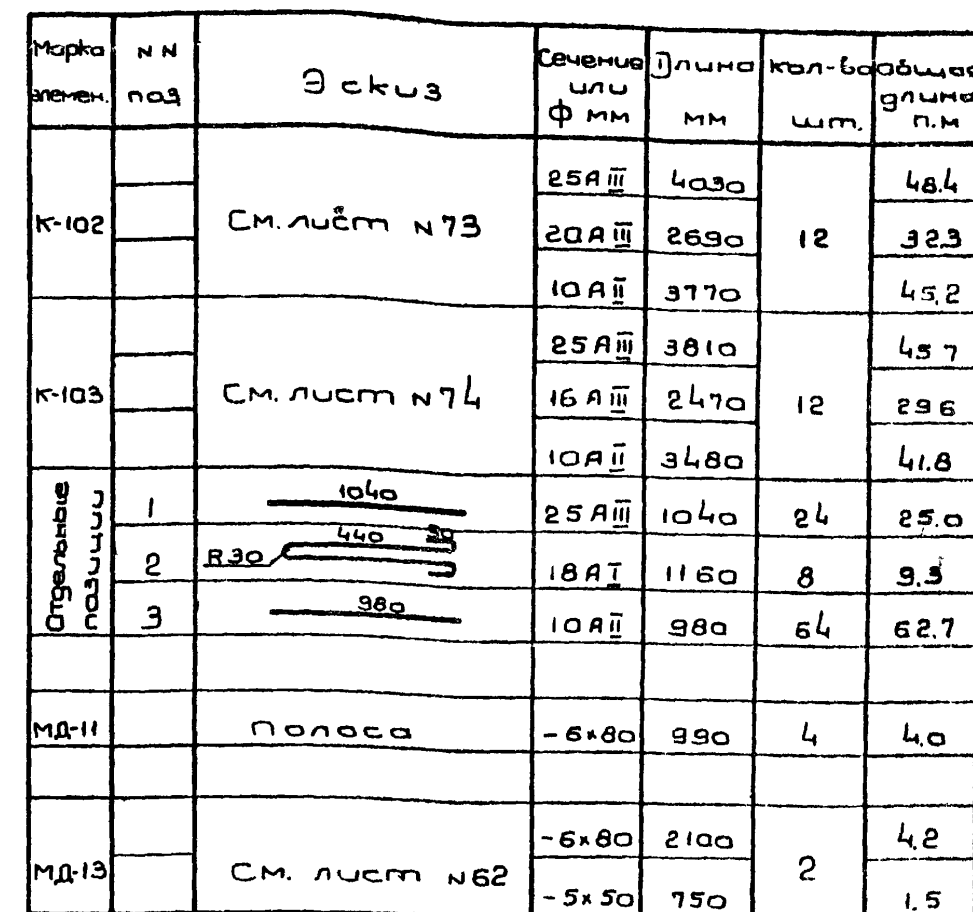 Марка элемен. NN поз Эскиз Сечение или Ф мм Длина мм кол-во шт. общая длина п.м
К-102 См. лист N73 12
25АIII 4030 48.4
20АIII 2690 32.3
10АII 3770 45.2
К-103 См. лист N74 12
25АIII 3810 45 7
16АIII 2470 29 6
10АII 3480 41.8
Отдельные позиции
1 1040 25АIII 1040 24 25.0
2 R30 440 50 18АI 1160 8 9.3
3 980 10АII 980 64 62.7
МД-11 Полоса -6×80 990 4 4.0
МД-13 См. лист N62 2
-6×80 2100 4.2
-5×50 750 1.5